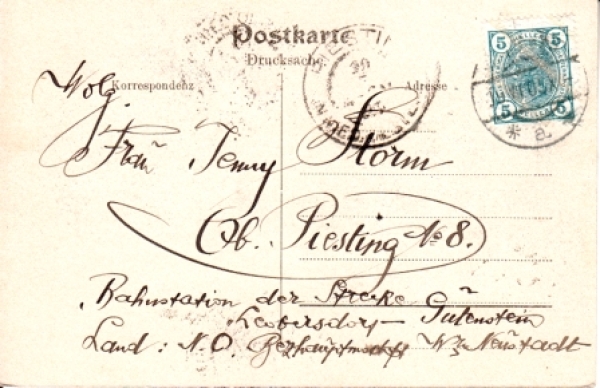 Postkarte
Drucksache
Korrespondenz
Adresse
5 5
5 5
a.
Wolg.
Frau Jenny Storm
Ob. Piesting No 8.
Bahnstation der Strecke
Leobersdorf – Gutenstein
Land: N.Ö. Bezhauptmschft Wr Neustadt